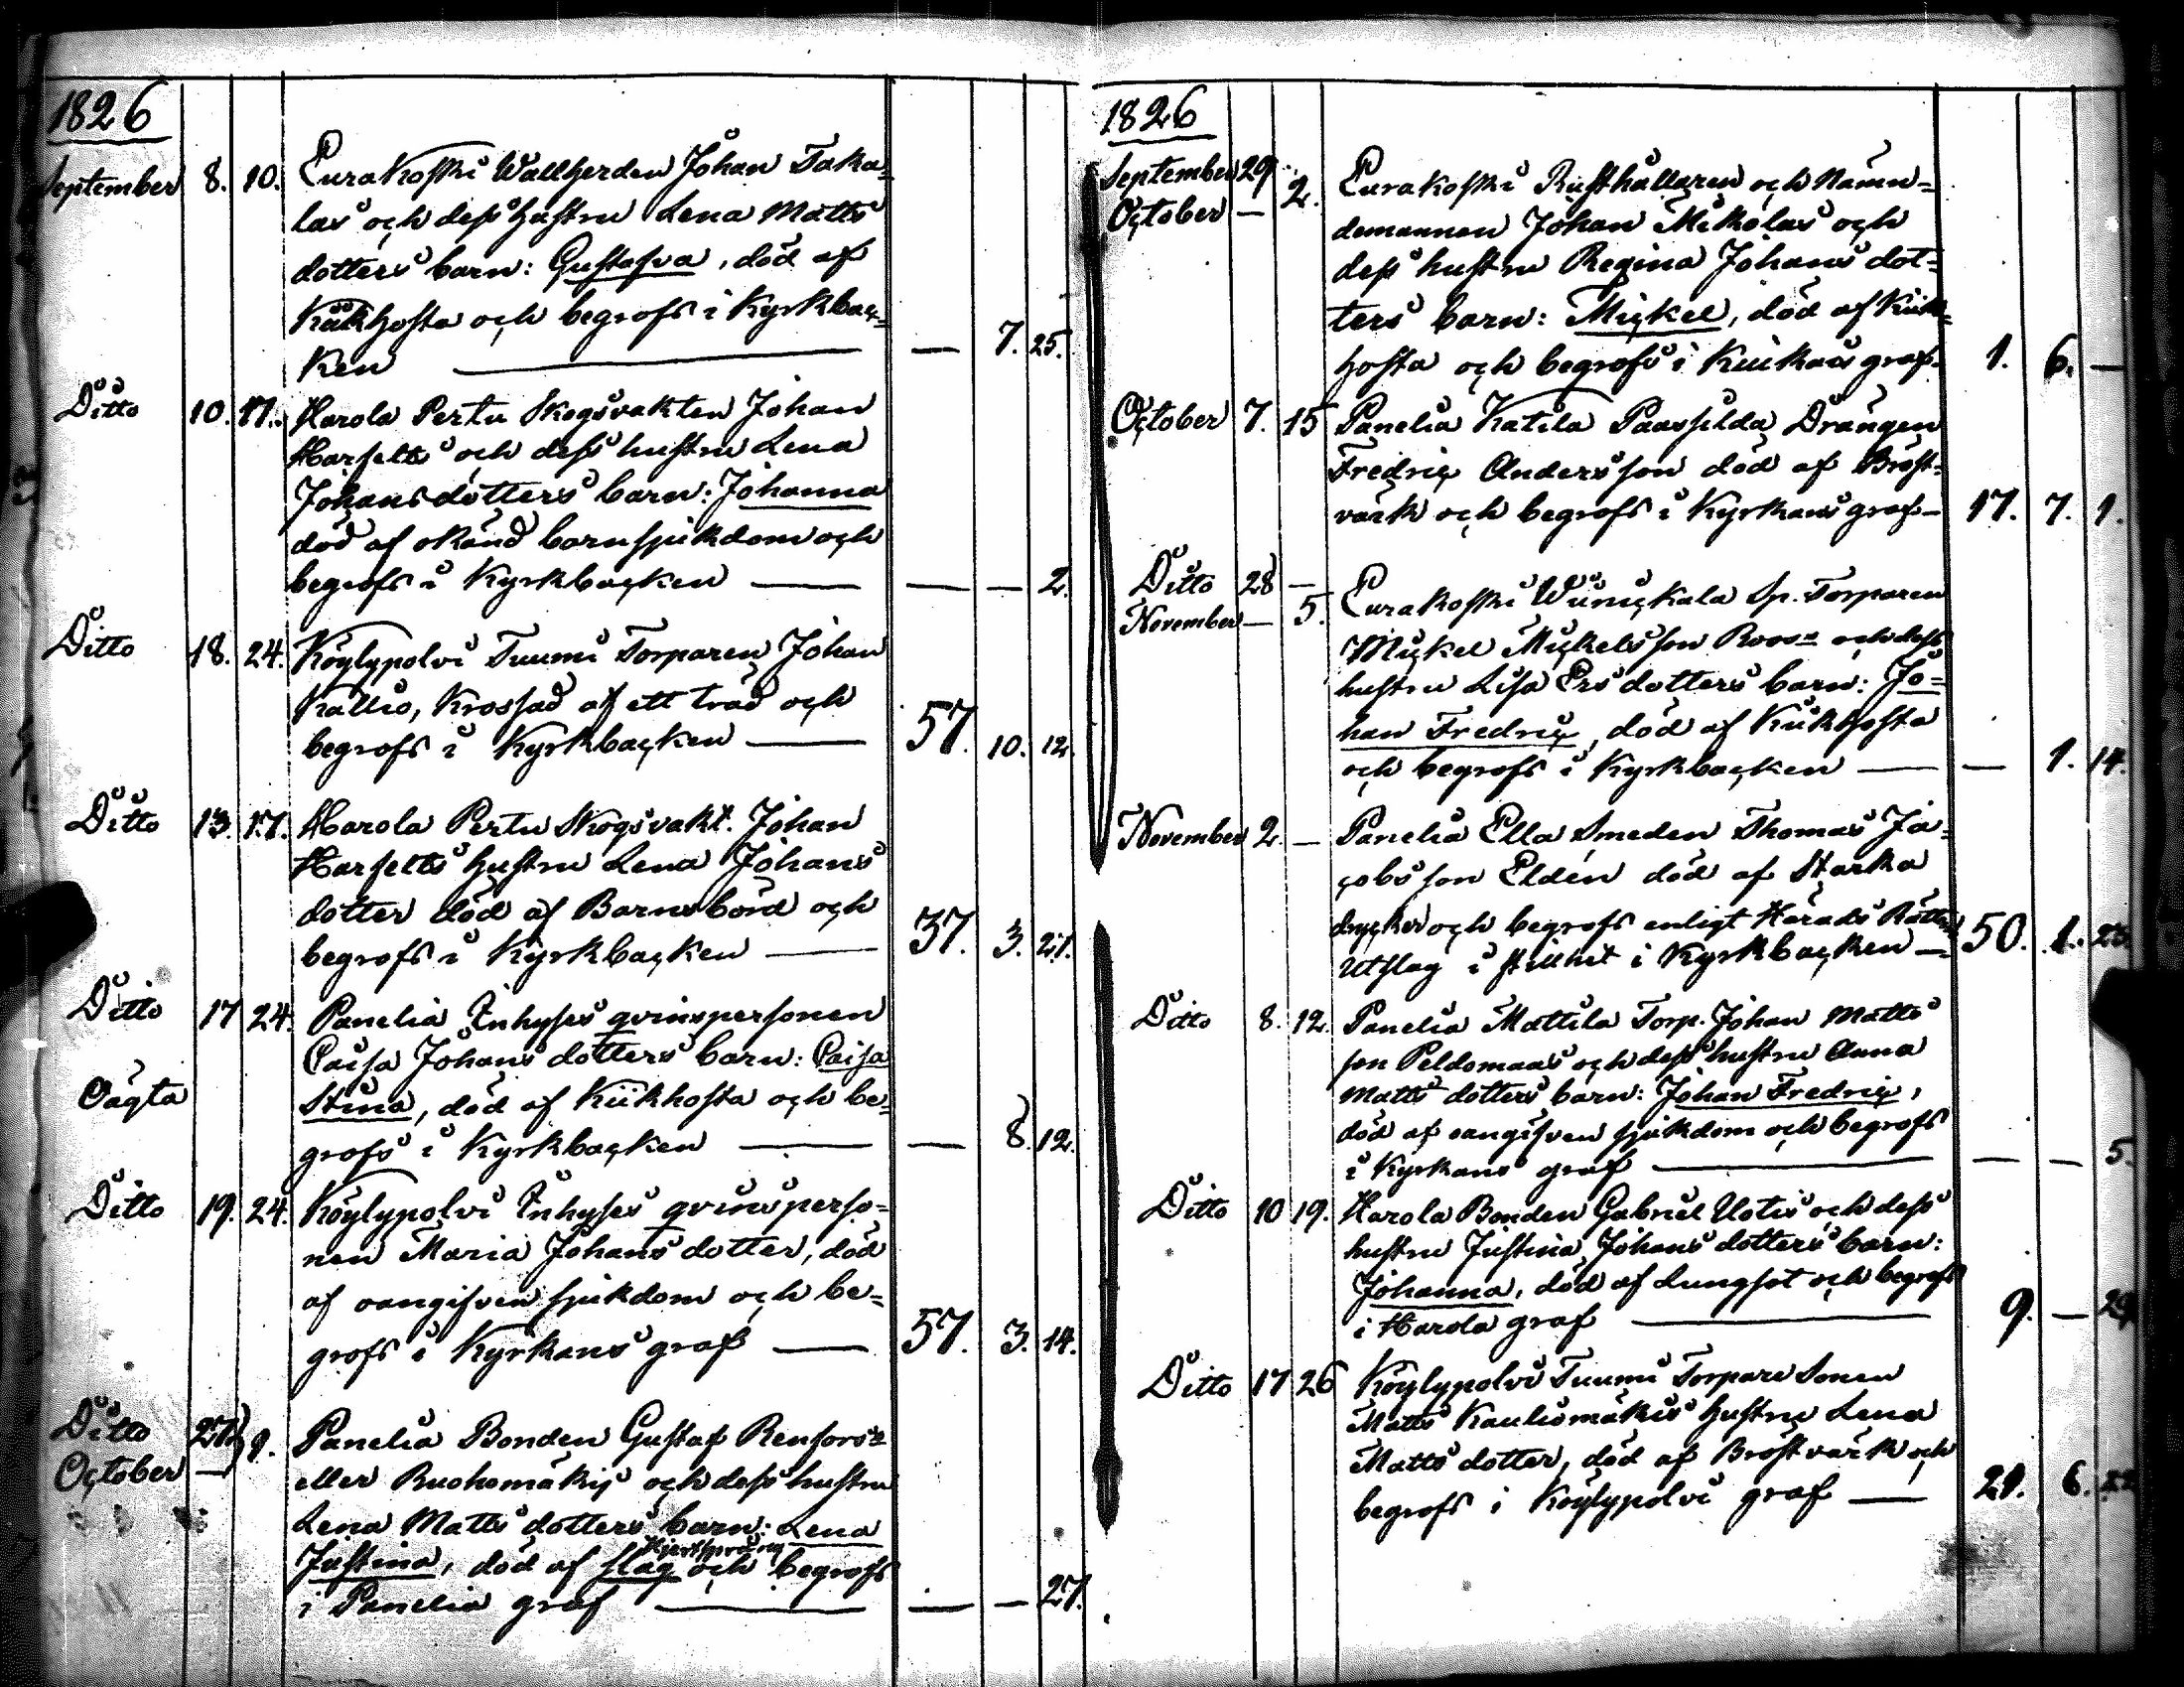 1826
September 8. 10. Eurakoski Wallherden Johan Taka-
las och dess hustru Lena Matts
dotters barn: Gustafva, död af
Kikhosta och begrofs i Kyrkbac-
ken — — 7. 25.
Ditto 10. 17. Harola Pertu Skogsvakten Johan
Harfelts och dess hustru Lena
Johansdotters barn: Johanna
död af okänd barnsjukdom och
begrofs i Kyrkbacken — — — 2.
Ditto 18. 24. Köylypolvi Tuumi Torparen Johan
Kallio, Krossad af ett träd och
begrofs i Kyrkbacken — 57. 10. 12.
Ditto 13. 17. Harola Pertu Skogsvakt. Johan
Harfelts hustru Lena Johans
dotter död af Barnsbörd och
begrofs i Kyrkbacken — 37. 3. 27.
Ditto 17 24. Panelia Inhyses qvinspersonen
Caisa Johans dotters barn: Caisa
Oägta Stina, död af Kikhosta och be-
grofs i Kyrkbacken — — 8. 12.
Ditto 19. 24. Köylypolvi Inhyses qvinsperso-
nen Maria Johans dotter, död
af oangifven sjukdom och be-
grofs i Kyrkans graf — 57. 3. 14.
Ditto 27 Panelia Bonden Gustaf Renfors
October — 1. eller Ruohomäkis och dess hustru
Lena Matts dotters barn: Lena
Justina, död af slag och begrofs
i Panelia graf — — — 27.
1826
September 29 Eurakoski Rusthållaren och Nämn-
October — 2. demannen Johan Mikolas och
dess hustru Regina Johans dot-
ters barn: Mickel, död af Kik-
hosta och begrofs i graf. 1. 6. —
October 7. 15 Panelia Katila Drängen
Fredric Andersson död af Bröst-
värk och begrofs i Kyrkans graf — 17. 7. 1.
Ditto 28 — Eurakoski Sp. Torparen
November — 5. Mickel Mickelsson Roos och dess
hustru Lisa Ersdotters barn: Jo-
han Fredric, död af Kikhosta
och begrofs i Kyrkbacken — — 1. 14.
November 2. — Panelia Ella Smeden Thomas Ja-
cobsson Eldén död af Starka
drycker och begrofs enligt Härads Rätts
Utslag i stillhet i Kyrkbacken — 50. 1.
Ditto 8. 12. Panelia Mattila Torp. Johan Matts
son Peldomaas och dess hustru Anna
Matts dotters barn: Johan Fredric,
död af oangifven sjukdom och begrofs
i Kyrkans graf — — — 5.
Ditto 10 19. Harola Bonden Gabriel Uotis och dess
hustru Justina Johans dotters barn:
Johanna, död af Lungsot och begrofs
i Harola graf — 9. — 29
Ditto 17 26 Köylypolvi Tuumi Torpare Sonen
Matts Kauliomäkis hustru Lena
Matts dotter, död af Bröstvärk och
begrofs i Köylypolvi graf — 29. 6.